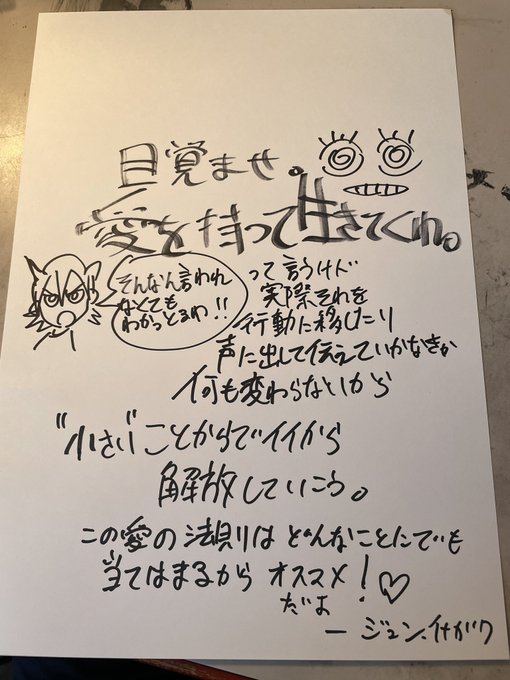 目覚ませ。
愛を持って生きてくれ。
そんなん言われ
なくても
わかっとるわ!!
って言うけど
実際それを
行動に移したり
声に出して伝えていかなきゃ
何も変わらないから
"小さい"ことからでイイから
解放していこう。
この愛の法則は どんなことにでも
当てはまるから オススメ!♡
だよ
― ジュン・イナガワ